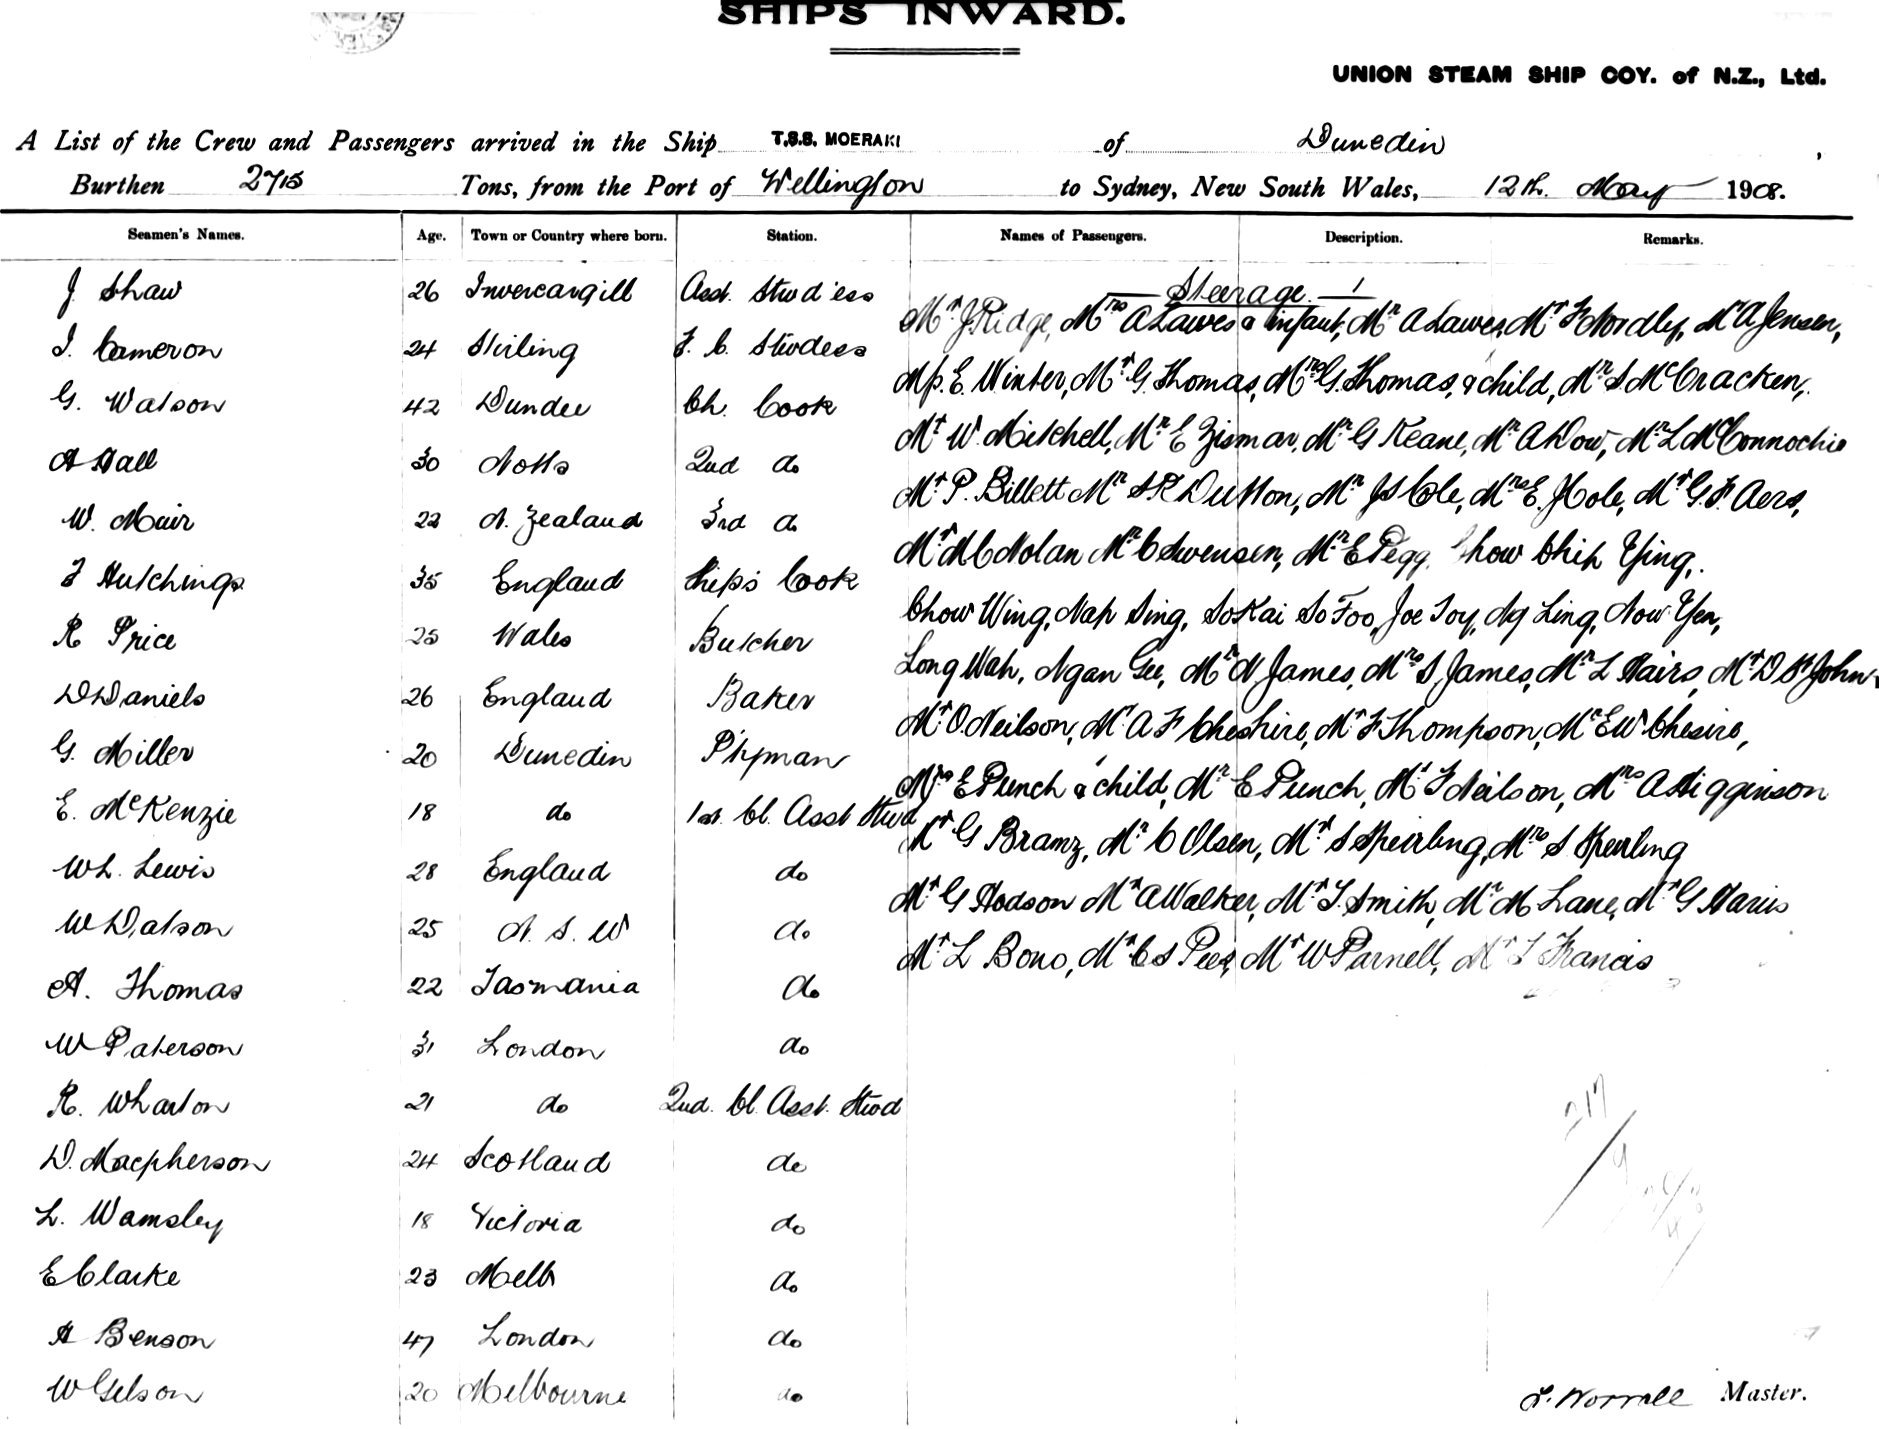 SHIPS INWARD.
UNION STEAM SHIP COY. of N.Z., Ltd.
A List of the Crew and Passengers arrived in the Ship T.S.S. MOERAKI of Dunedin
Burthen 2715 Tons, from the Port of Wellington to Sydney, New South Wales, 12th. May 1908.
Seamen's Names. Age. Town or Country where born. Station. Names of Passengers. Description. Remarks.
J Shaw 26 Invercargill Asst. Stwd'ess
I. Cameron 24 Stirling F. C. Stwdess
G. Watson 42 Dundee Ch. Cook
A Hall 30 Notts 2nd do
W. Muir 22 N. Zealand 3rd do
F Hutchings 35 England Ship's Cook
R Price 25 Wales Butcher
D Daniels 26 England Baker
G. Miller 20 Dunedin P'tryman
E. McKenzie 18 do 1st. Cl. Asst Stwd
WL. Lewis 28 England do
W Watson 25 N. S. W do
A. Thomas 22 Tasmania do
W Paterson 31 London do
R. Wharton 21 do 2nd. Cl. Asst. Stwd
D. Macpherson 24 Scotland do
L. Wamsley 18 Victoria do
E Clarke 23 Melb do
A Benson 47 London do
W Gelson 20 Melbourne do
Steerage. 1
Mr J. Ridge, Mrs A Lawes & infant, Mr A Lawes, Mr F Nordly, Mr A Jensen,
E. Winter, Mr G. Thomas, Mrs G. Thomas, & child, Mr S. McCracken,
Mr W. Mitchell, Mr E Zisman, Mr G Keane, Mr A Dow, Mr L McConnochie
Mr P. Billett Mr S R Dutton, Mr J S Cole, Mrs E. J Cole, Mr G. F. Aers,
Mr M C Nolan Mr C Swensen, Mr E Pegg, Chow Chip Ying,
Chow Wing, Nap Sing, So Kai So Foo, Joe Toy, Ng Ling, Now Yen,
Long Wah, Ngan Gee, Mr N James, Mrs S James, Mr L Hairs, Mr D St John
Mr O. Neilson, Mr A F Cheshire, Mr F Thompson, Mr E W Chesire,
Mrs E Punch & child, Mr E Punch, Mr F Neilson, Mrs A Higginson
Mr G Bramz, Mr C Olsen, Mr S Speirling, Mrs S Speirling
Mr G Hodson Mr A Walker, Mr T. Smith, Mr M Lane, Mr G Harris
Mr L Bono, Mr C S Pees, Mr W Parnell, Mr T Francis
217
L. Worrall Master.